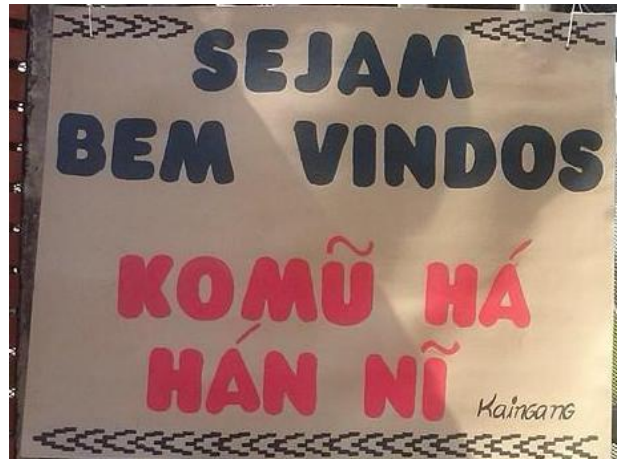 SEJAM
BEM VINDOS
KOMŨ HÁ
HÁN NĨ
Kaingang